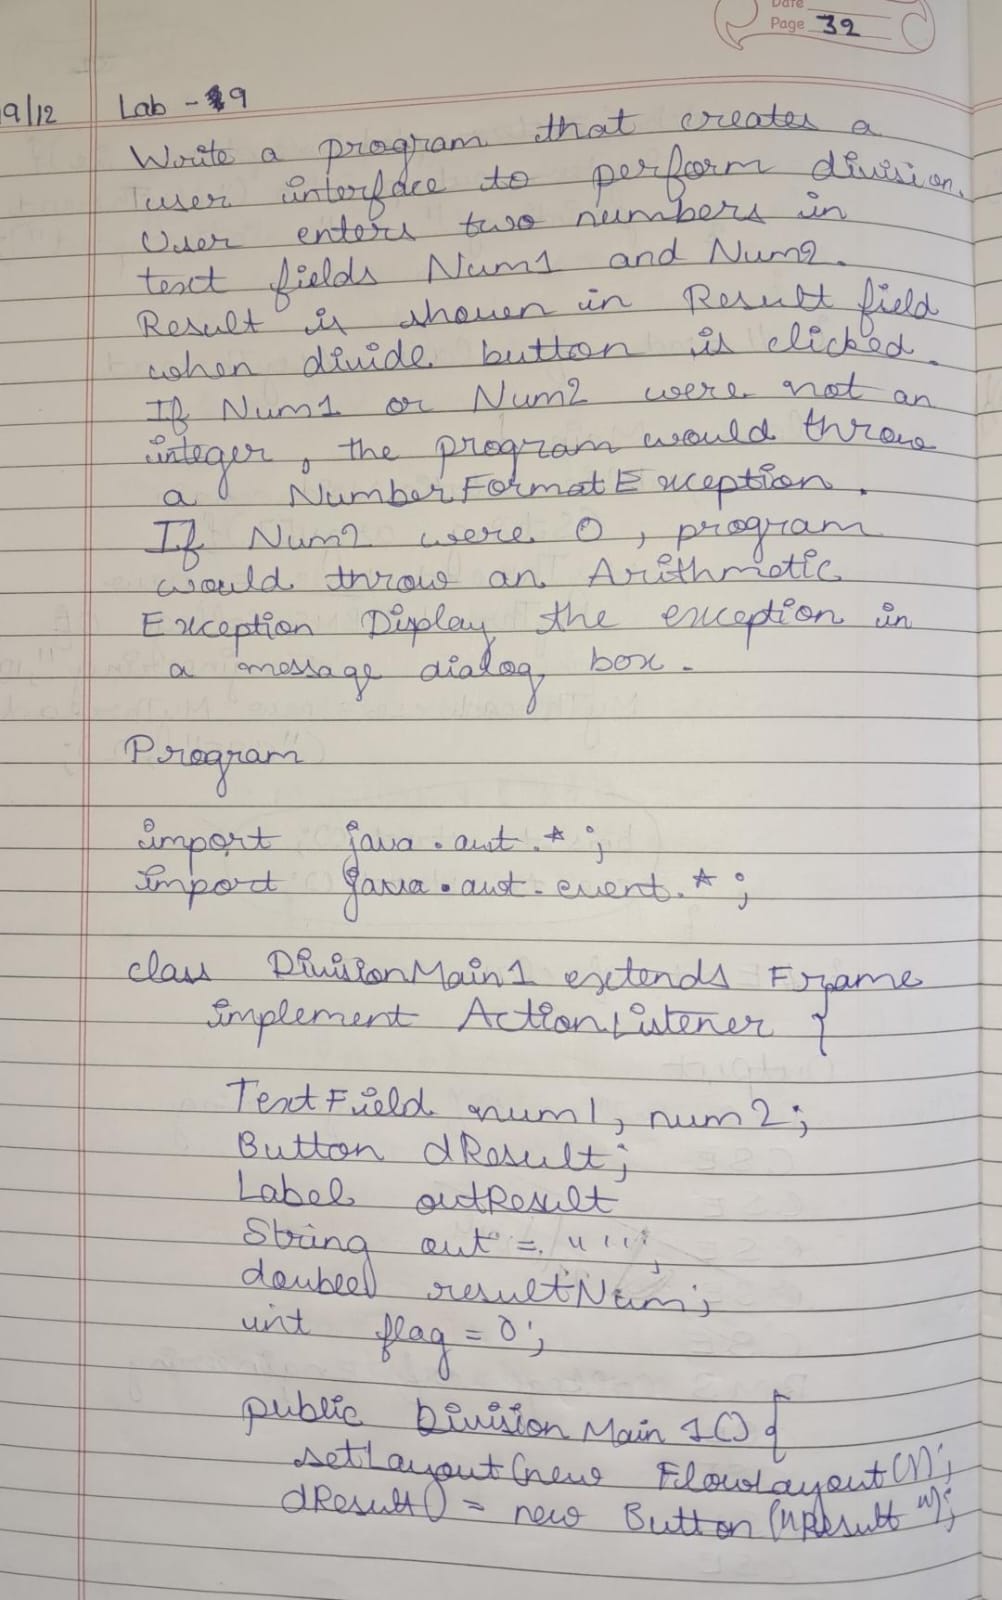 Date
Page 32
19/12 Lab - 9
Write a program that creates a
user interface to perform division.
User enters two numbers in
text fields Num1 and Num2.
Result is shown in Result field
when divide button is clicked.
If Num1 or Num2 were not an
integer, the program would throw
a NumberFormatException.
If Num2 were 0, program
would throw an Arithmetic
Exception Display the exception in
a message dialog box.
Program
import java.awt.*;
import java.awt.event.*;
class DivisionMain1 extends Frame
implement ActionListener {
TextField num1, num2;
Button dResult;
Label outResult
String out = "";
doubel resultNum;
int flag = 0;
public DivisionMain1() {
setLayout(new FlowLayout());
dResult() = new Button("Result");